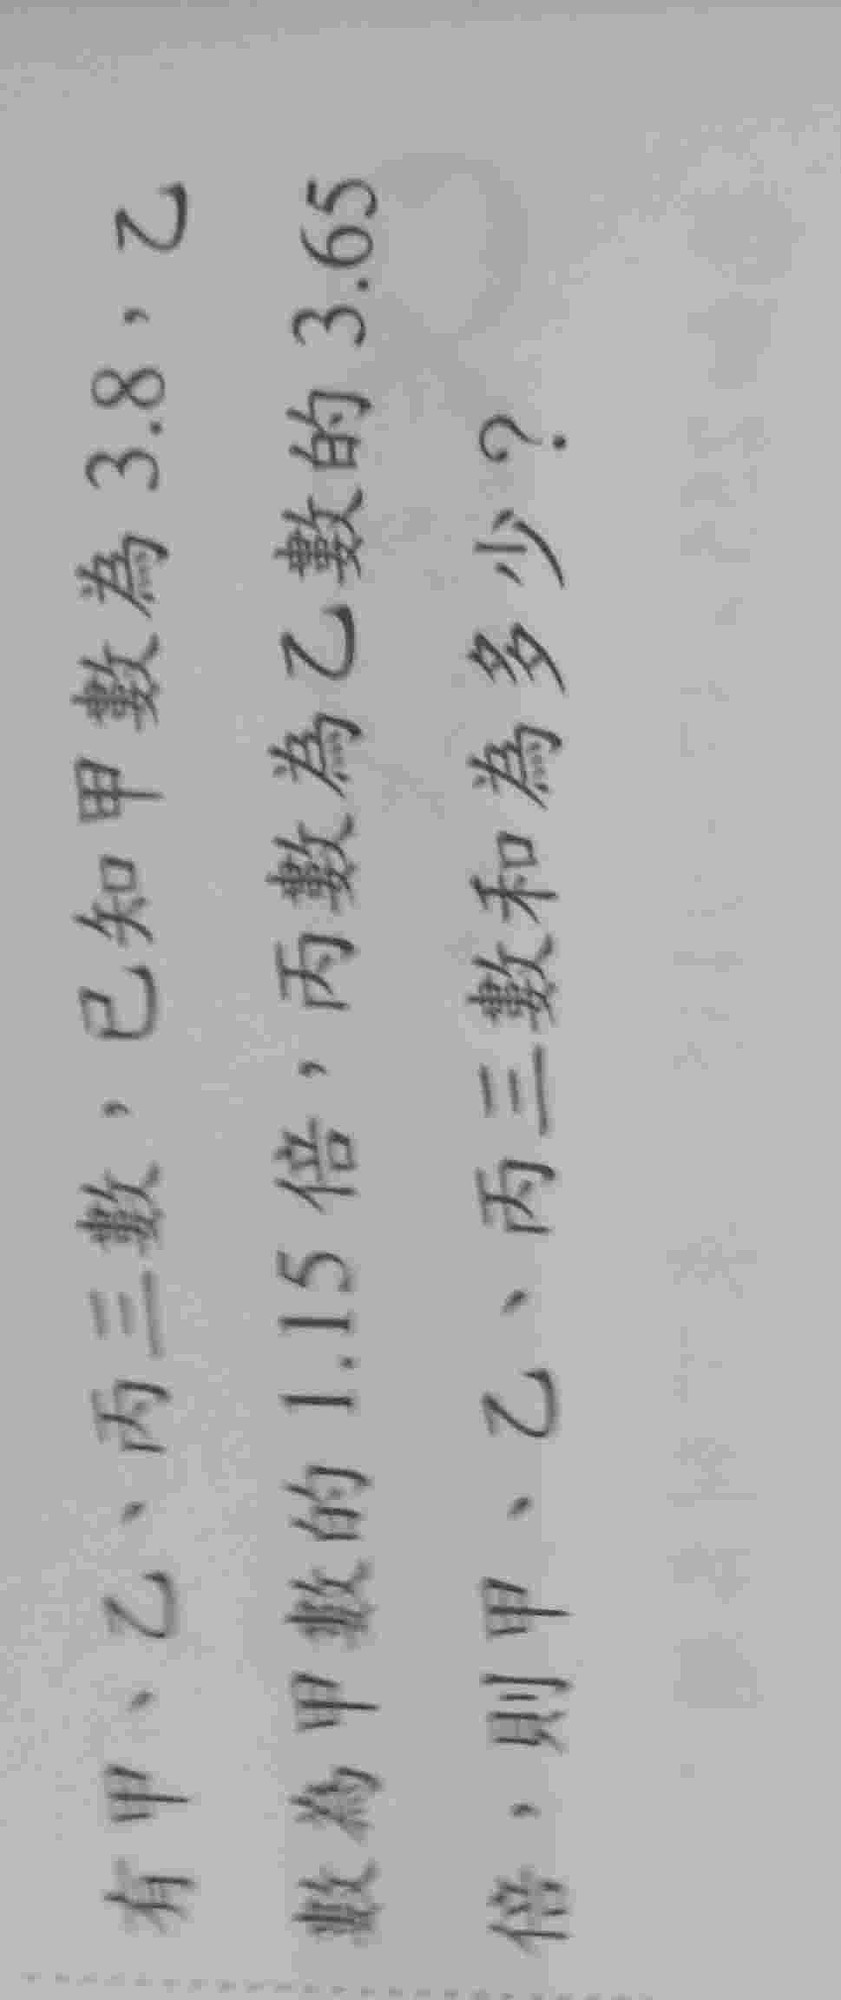 有甲、乙、丙三數，已知甲數為 3.8，乙
數為甲數的 1.15 倍，丙數為乙數的 3.65
倍，則甲、乙、丙三數和為多少？